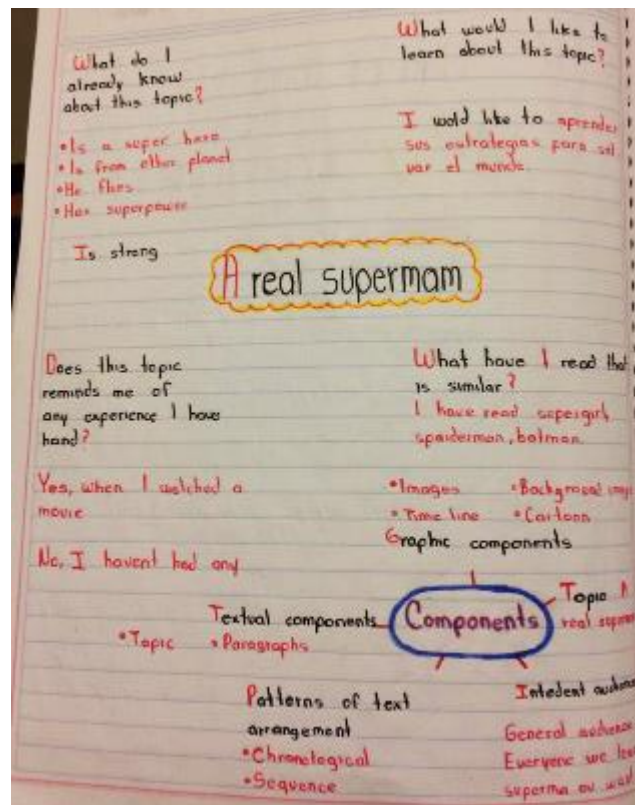 What do I
already know
about this topic?
• Is a super hero
• Is from other planet
• He flies
• Has superpower
Is strong
What would I like to
learn about this topic?
I wold like to aprender
sus estrategias para sal
var el mundo.
A real supermam
Does this topic
reminds me of
any experience I have
hand?
Yes, when I watched a
movie
No, I havent had any
What have I read that
is similar?
I have read supergirl,
spaiderman, batman.
• Images • Background
• Time line • Cartoon
Graphic components
Components
Topic A
real
Textual components
• Topic • Paragraphs
Patterns of text
arrangement
• Chronological
• Sequence
Intedent
General audience
Everyone we
superma ou